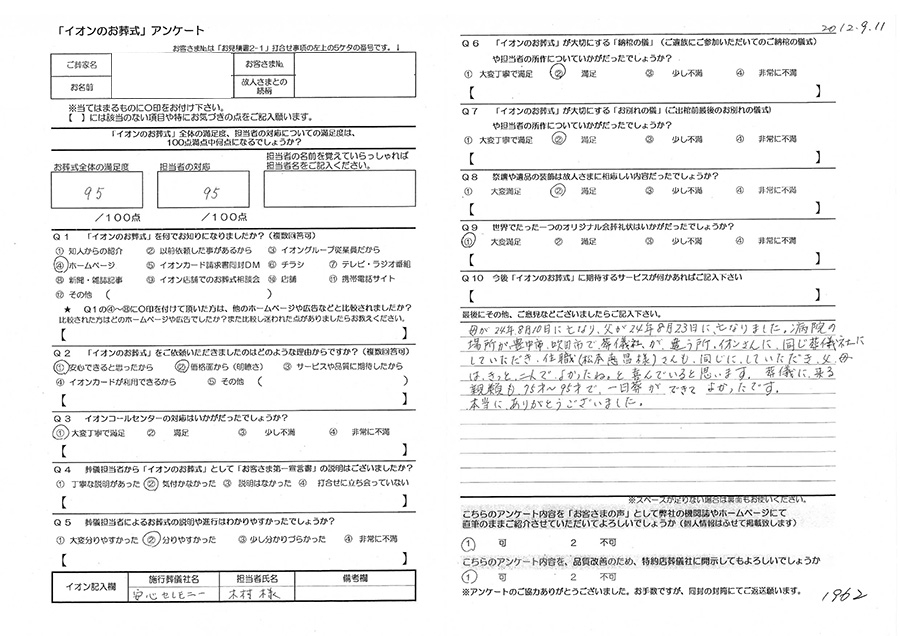 「イオンのお葬式」アンケート
お客さま№は「お見積書2-1」打合せ事項の左上の5ケタの番号です。↓
ご葬家名
お客さま№
お名前
故人さまとの続柄
※当てはまるものに○印をお付け下さい。
【 】には該当のない項目や特にお気づきの点をご記入願います。
「イオンのお葬式」全体の満足度、担当者の対応についての満足度は、
100点満点中何点になるでしょうか？
お葬式全体の満足度
担当者の対応
担当者の名前を覚えていらっしゃれば
担当者名をご記入ください。
95
95
／100点
／100点
Q1 「イオンのお葬式」を何でお知りになりましたか？（複数回答可）
① 知人からの紹介 ② 以前依頼した事があるから ③ イオングループ従業員だから
④ ホームページ ⑤ イオンカード請求書同封DM ⑥ チラシ ⑦ テレビ・ラジオ番組
⑧ 新聞・雑誌記事 ⑨ イオン店舗でのお葬式相談会 ⑩ 店舗 ⑪ 携帯電話サイト
⑫ その他 （ ）
★ Q1の④～⑧に○印を付けて頂いた方は、他のホームページや広告などと比較されましたか？
比較された方はどのホームページや広告でしたか？また比較し迷われた点がありましたらお教えください。
【 】
Q2 「イオンのお葬式」をご依頼いただきましたのはどのような理由からですか？（複数回答可）
① 安心できると思ったから ② 価格面から（明瞭さ） ③ サービスや品質に期待したから
④ イオンカードが利用できるから ⑤ その他 （ ）
【 】
Q3 イオンコールセンターの対応はいかがだったでしょうか？
① 大変丁寧で満足 ② 満足 ③ 少し不満 ④ 非常に不満
【 】
Q4 葬儀担当者から「イオンのお葬式」として「お客さま第一宣言書」の説明はございましたか？
① 丁寧な説明があった ② 気付かなかった ③ 説明はなかった ④ 打合せに立ち会っていない
【 】
Q5 葬儀担当者によるお葬式の説明や進行はわかりやすかったでしょうか？
① 大変分りやすかった ② 分りやすかった ③ 少し分かりづらかった ④ 非常に不満
【 】
イオン記入欄
施行葬儀社名
担当者氏名
備考欄
安心セレモニー
木村様
2012.9.11
Q6 「イオンのお葬式」が大切にする「納棺の儀」（ご遺族にご参加いただいてのご納棺の儀式）
や担当者の所作についていかがだったでしょうか？
① 大変丁寧で満足 ② 満足 ③ 少し不満 ④ 非常に不満
【 】
Q7 「イオンのお葬式」が大切にする「お別れの儀」（ご出棺前最後のお別れの儀式）
や担当者の所作についていかがだったでしょうか？
① 大変丁寧で満足 ② 満足 ③ 少し不満 ④ 非常に不満
【 】
Q8 祭壇や遺品の装飾は故人さまに相応しい内容だったでしょうか？
① 大変満足 ② 満足 ③ 少し不満 ④ 非常に不満
【 】
Q9 世界でたった一つのオリジナル会葬礼状はいかがだったでしょうか？
① 大変満足 ② 満足 ③ 少し不満 ④ 非常に不満
【 】
Q10 今後「イオンのお葬式」に期待するサービスが何かあればご記入下さい
【 】
最後にその他、ご意見などございましたらご記入下さい。
母が24年8月10日に亡なり、父が24年8月23日に、亡なりました。病院の
場所が豊中市、吹田市で葬儀社が、違う所、イオンさんに、同じ葬儀社に
していただき、住職(松本恵昌様)さんも、同じに、していただき、父、母
は、きっと、二人で、よかったね。と喜んでいると思います。葬儀に、来る
親類も、75才～95才で、一回葬ができてよかったです。
本当に、ありがとうございました。
※スペースが足りない場合は裏面もお使いください。
こちらのアンケート内容を「お客さまの声」として弊社の機関誌やホームページにて
直筆のままご紹介させていただいてよろしいでしょうか（個人情報はふせて掲載致します）
1 可 2 不可
こちらのアンケート内容を、品質改善のため、特約店葬儀社に開示してもよろしいでしょうか
1 可 2 不可
※アンケートのご協力ありがとうございました。お手数ですが、同封の封筒にてご返送願います。
1962